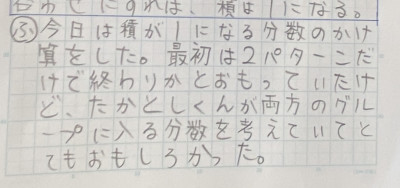 合わせにすれば、積は1になる。
ふ今日は積が1になる分数のかけ
算をした。最初は2パターンだ
けで終わりかとおもっていたけ
ど、たかとしくんが両方のグル
ープに入る分数を考えていてと
てもおもしろかった。